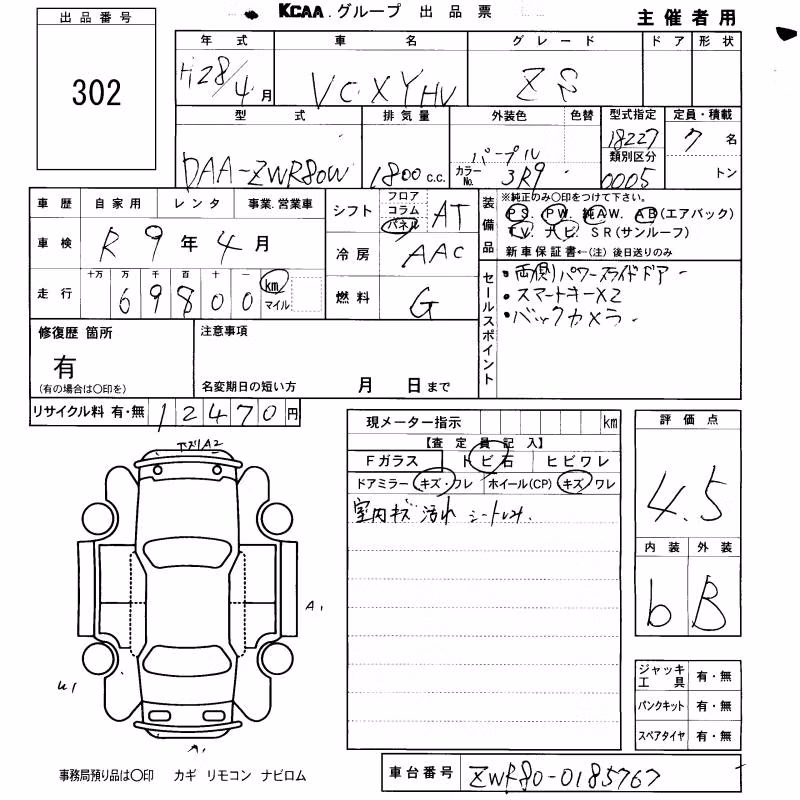 KCAA.グループ 出品票
主催者用
出品番号
302
年式 車名 グレード ドア 形状
H28/4月 VCXYHV ZS
型式 排気量 外装色 色替 型式指定 定員・積載
DAA-ZWR80W 1800c.c. パープル カラーNo. 3R9 18227 7名
類別区分
0005 トン
車歴 自家用 レンタ 事業.営業車
車検 R9年4月
走行 十万 万 千 百 十 一
69800 km マイル
シフト フロア コラム パネル AT
冷房 AAC
燃料 G
装備品
※純正のみ〇印をつけて下さい。
PS. PW. 純AW. AB(エアバック)
TV. ナビ. SR(サンルーフ)
新車保証書←(注)後日送りのみ
セールスポイント
・両側パワースライドドア
・スマートキーX2
・バックカメラ
修復歴 箇所
有
(有の場合は〇印を)
注意事項
名変期日の短い方 月 日まで
リサイクル料 有・無 12470円
現メーター指示 km
【査定員記入】
Fガラス トビ石 ヒビワレ
ドアミラー キズ・ワレ ホイール(CP) キズ ワレ
室内キズ 汚れ シート
評価点
4.5
内装 外装
b B
A2
A1
U1
A1
ジャッキ工具 有・無
パンクキット 有・無
スペアタイヤ 有・無
事務局預り品は〇印 カギ リモコン ナビロム
車台番号 ZWR80-0185767